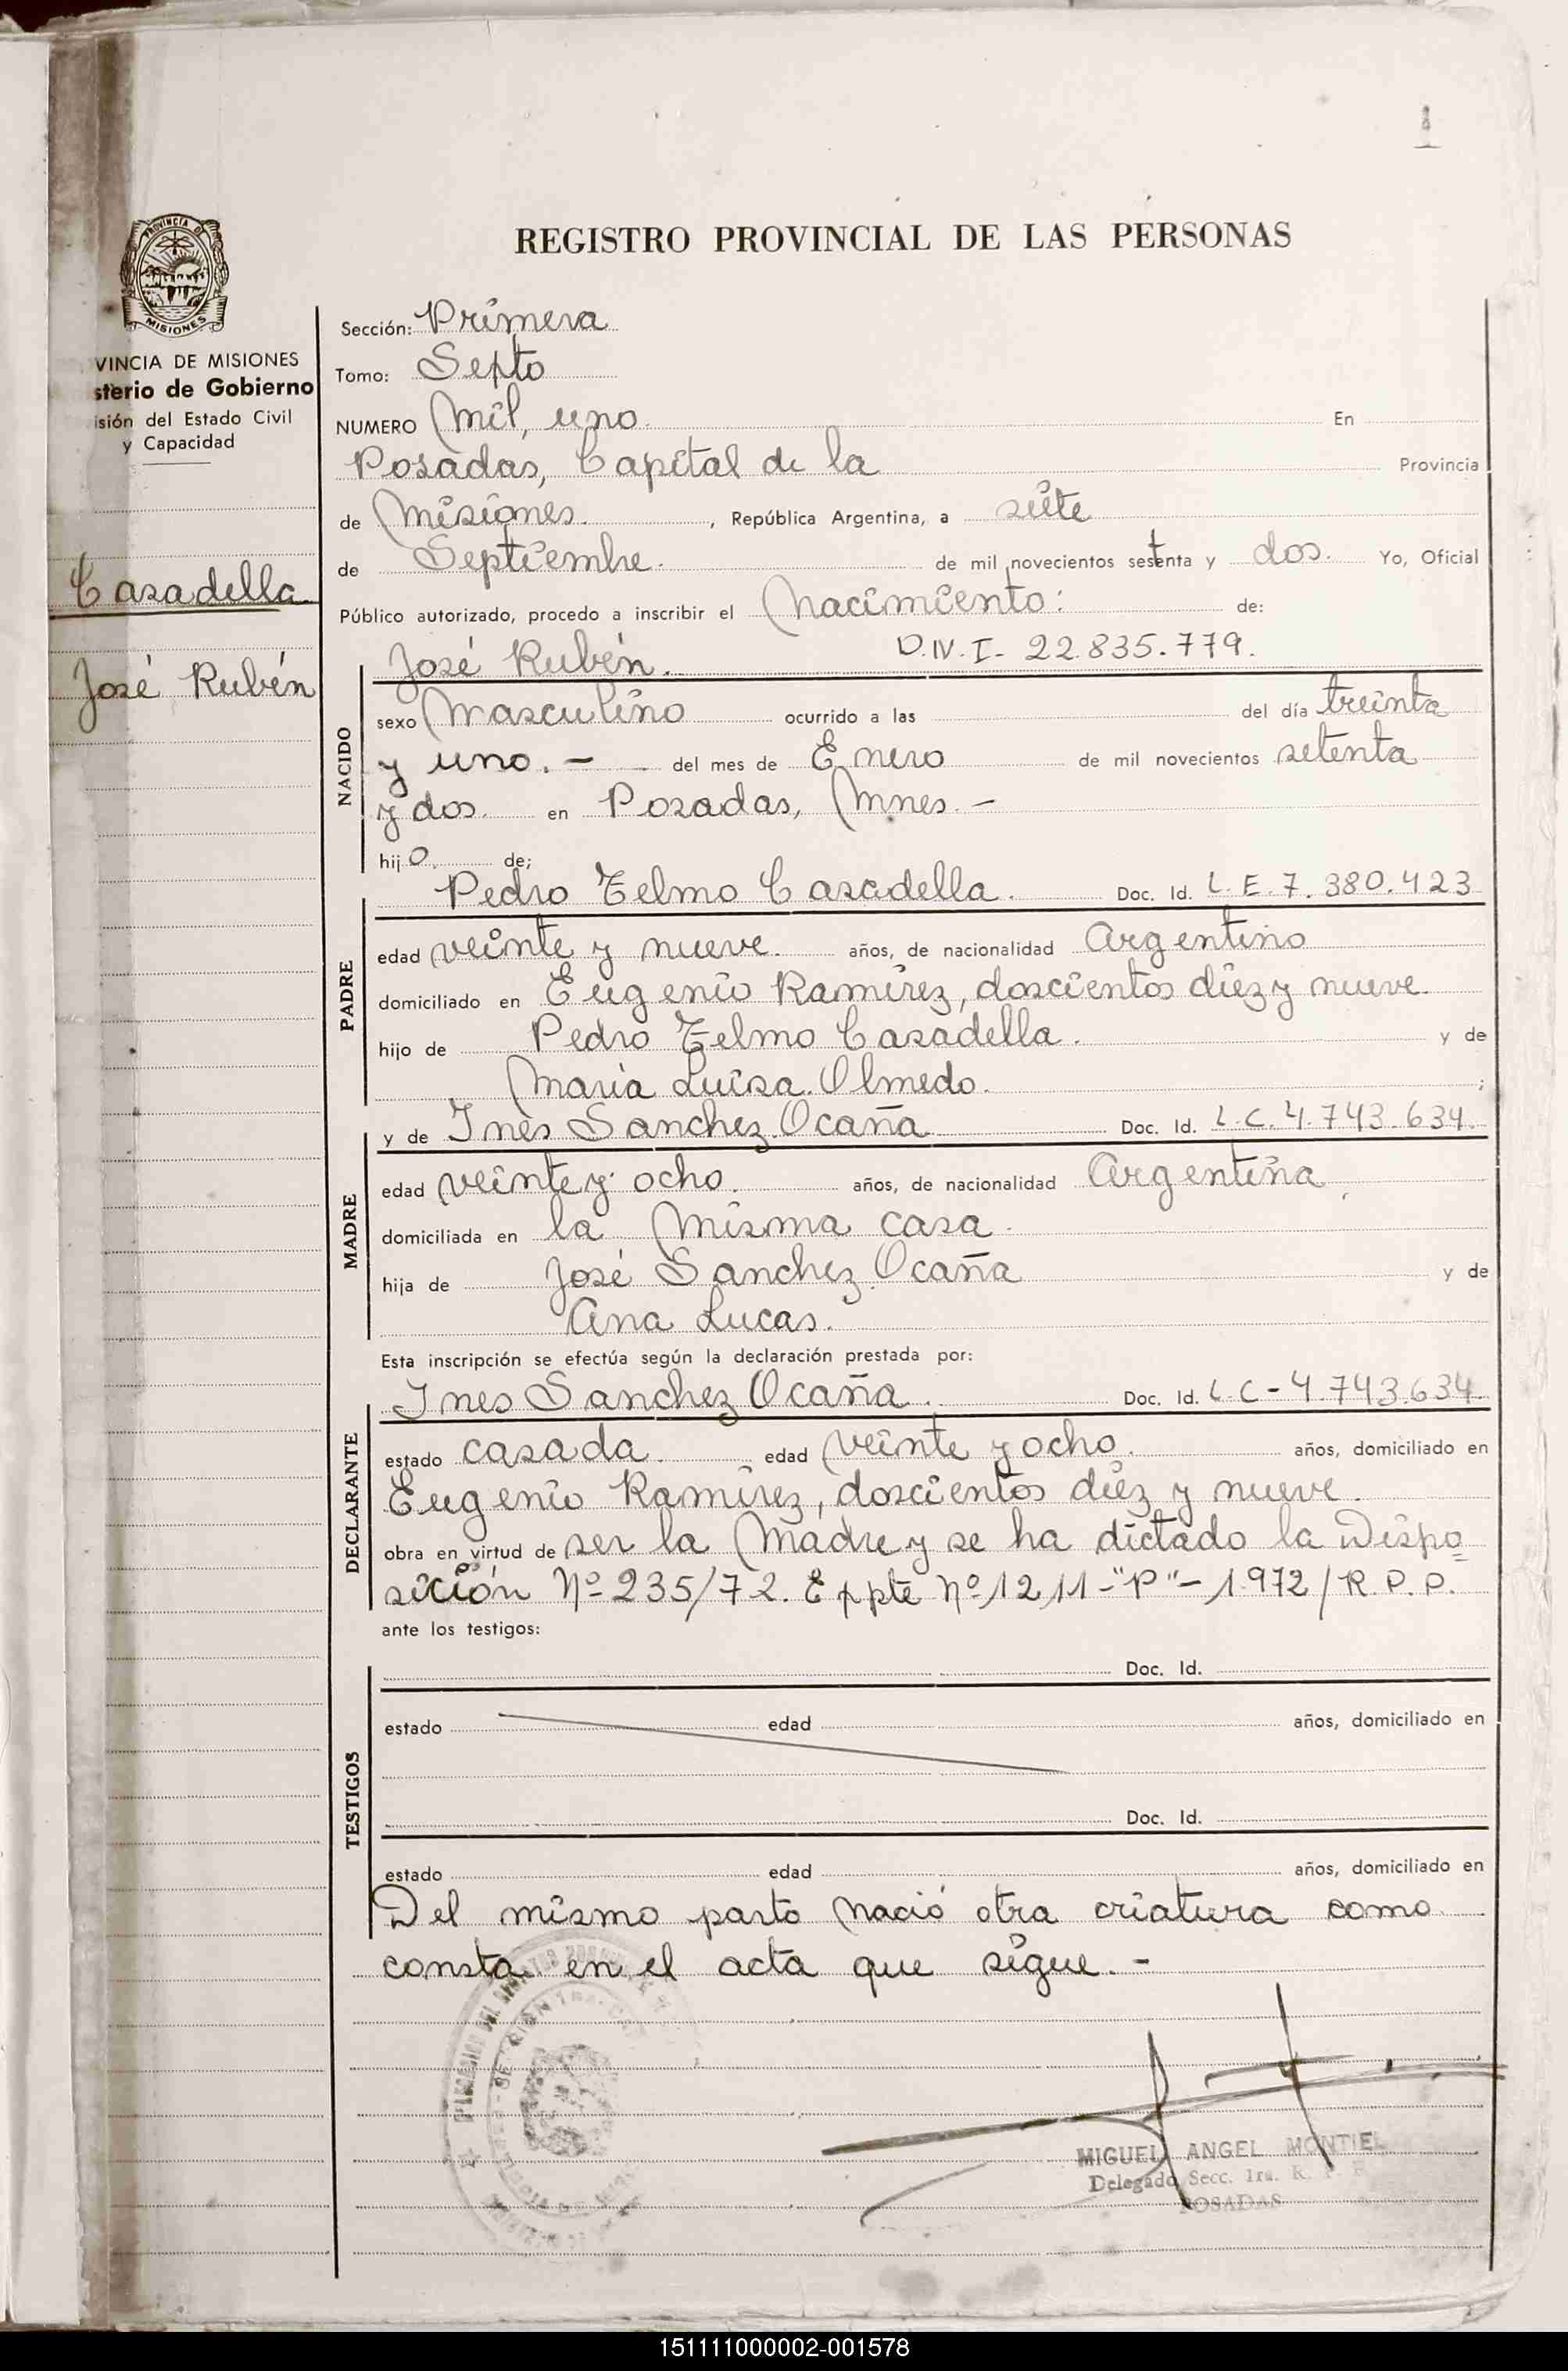 1
REGISTRO PROVINCIAL DE LAS PERSONAS
PROVINCIA DE
MISIONES
VINCIA DE MISIONES
sterio de Gobierno
isión del Estado Civil
y Capacidad
Casadella
José Rubén
Sección: Primera
Tomo: Septo
NUMERO Mil, uno. En
Posadas, Capital de la Provincia
de Misiones. , República Argentina, a siete
de Septiembre. de mil novecientos setenta y dos. Yo, Oficial
Público autorizado, procedo a inscribir el Nacimiento: de:
José Rubén. D.N.I- 22.835.779.
NACIDO
sexo Masculino ocurrido a las del día treinta
y uno. - del mes de Enero de mil novecientos setenta
y dos. en Posadas, Mnes. -
hijo. de;
Pedro Telmo Casadella. Doc. Id. L.E. 7.380.423
PADRE
edad veinte y nueve. años, de nacionalidad Argentino
domiciliado en Eugenio Ramírez, doscientos diez y nueve.
hijo de Pedro Telmo Casadella. y de
María Luisa Olmedo. ;
y de Ines Sanchez Ocaña Doc. Id. L.C. 4.743.634.
MADRE
edad veinte y ocho. años, de nacionalidad Argentina
domiciliada en la Misma casa.
hija de José Sanchez Ocaña y de
Ana Lucas.
Esta inscripción se efectúa según la declaración prestada por:
Ines Sanchez Ocaña. Doc. Id. L.C-4.743.634
DECLARANTE
estado casada. edad veinte y ocho. años, domiciliado en
Eugenio Ramírez, doscientos diez y nueve.
obra en virtud de ser la Madre y se ha dictado la Dispo
sición Nº 235/72. Exppte Nº 1211-"P"-1.972/R.P.P.
ante los testigos:
TESTIGOS
Doc. Id.
estado edad años, domiciliado en
Doc. Id.
estado edad años, domiciliado en
Del mismo parto Nació otra criatura como
consta en el acta que sigue. -
MIGUEL ANGEL MONTIEL
Delegado Secc. 1ra. R. P. P.
POSADAS
151111000002-001578